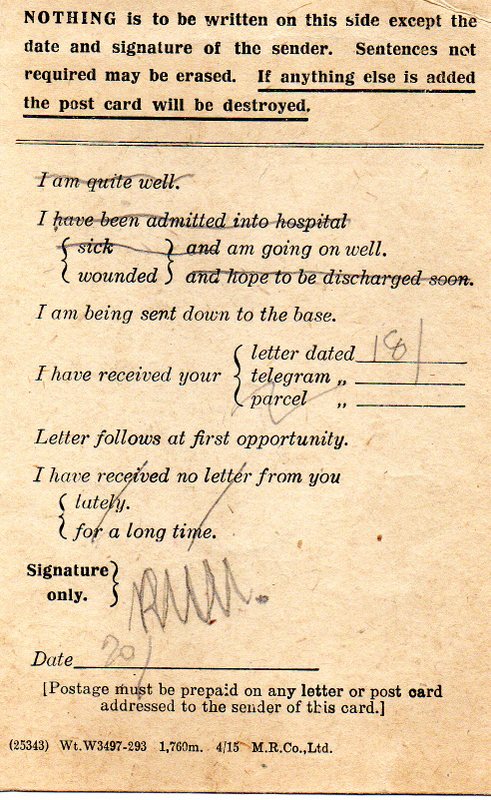 NOTHING is to be written on this side except the
date and signature of the sender. Sentences not
required may be erased. If anything else is added
the post card will be destroyed.
I am quite well.
I have been admitted into hospital
{ sick } and am going on well.
{ wounded } and hope to be discharged soon.
I am being sent down to the base.
letter dated 18/
I have received your { telegram „
parcel „
Letter follows at first opportunity.
I have received no letter from you
{ lately.
{ for a long time.
Signature }
only. }
Date 20/
[Postage must be prepaid on any letter or post card
addressed to the sender of this card.]
(25343) Wt.W3497-293 1,760m. 4/15 M.R.Co.,Ltd.